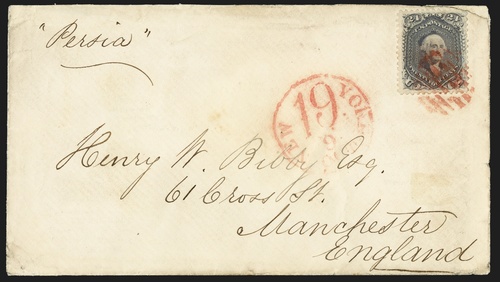 "Persia"
24 24
U.S. POSTAGE
NEW YORK
19
Henry W. Bibby Esq.
61 Cross St.
Manchester
England